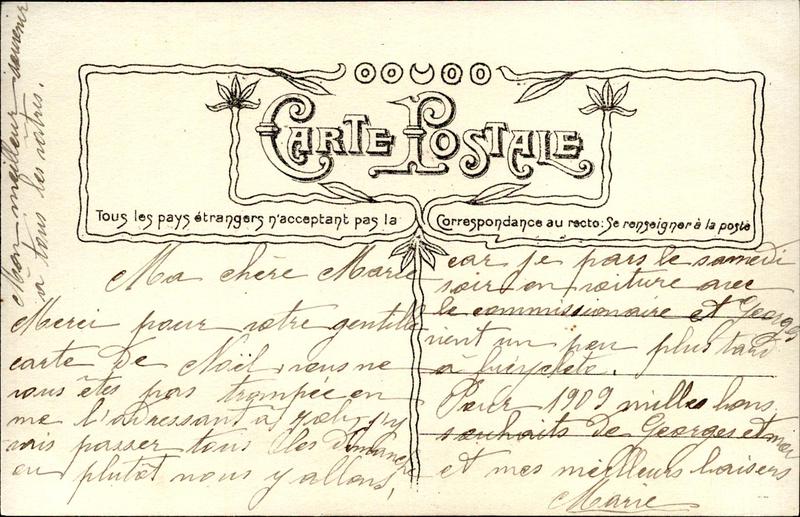 Mon meilleur souvenir
à tous les nôtres.
CARTE POSTALE
Tous les pays étrangers n'acceptant pas la Correspondance au recto: Se renseigner à la poste
Ma chère Marie
Merci pour votre gentille
carte de Noël, vous ne
vous êtes pas trompée en
me l'adressant à j'y
vais passer tous les Dimanche
ou plutôt nous y allons,
car je pars le samedi
soir en voiture avec
le commissionaire et Georges
vient un peu plus tard
à bicyclete.
Pour 1909 milles bons
souhaits de Georges et moi
et mes meilleurs baisers
Marie